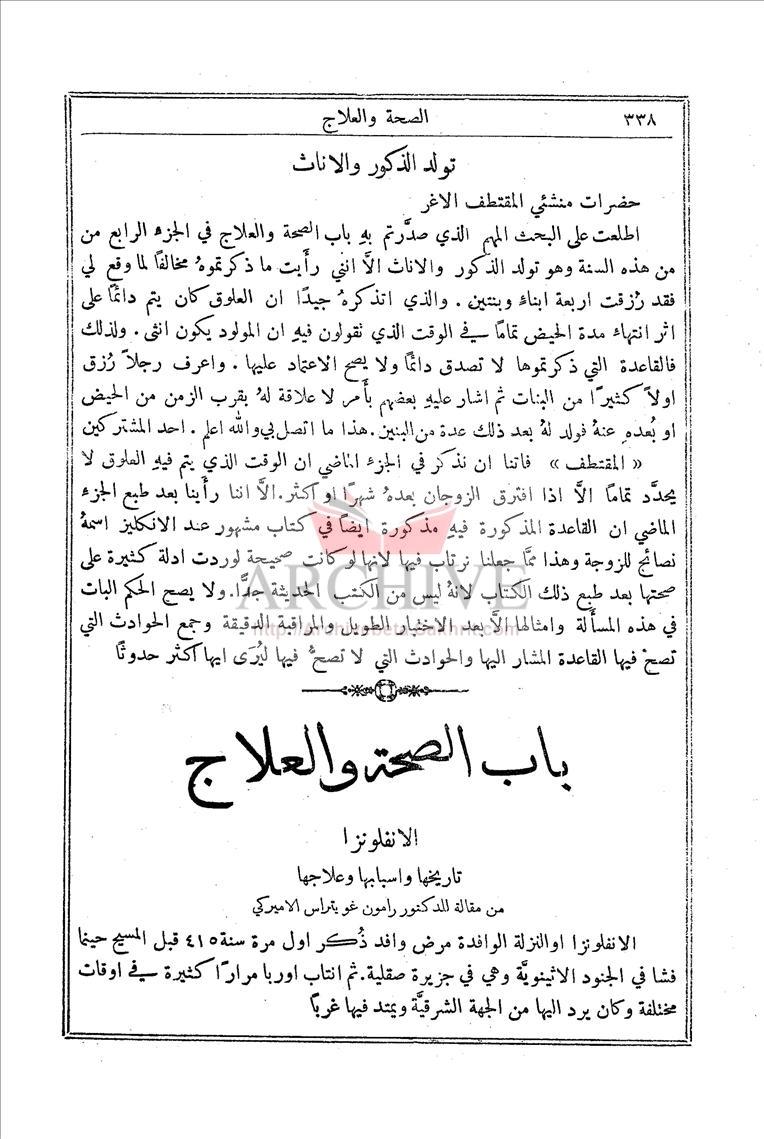 ٣٣٨
الصحة والعلاج
تولد الذكور والاناث
حضرات منشئي المقتطف الاغر
اطلعت على البحث المهم الذي صدَّرتم بهِ باب الصحة والعلاج في الجزء الرابع من
من هذه السنة وهو تولد الذكور والاناث الاَّ انني رأَيت ما ذكرتموهُ مخالفًا لما وقع لي
فقد رُزقت اربعة ابناء وبنتين . والذي اتذكرهُ جيدًا ان العلوق كان يتم دائمًا على
اثر انتهاء مدة الحيض تمامًا في الوقت الذي نقولون فيهِ ان المولود يكون انثى . ولذلك
فالقاعدة التي ذكرتموها لا تصدق دائمًا ولا يصح الاعتماد عليها . واعرف رجلاً رُزق
اولاً كثيرًا من البنات ثم اشار عليهِ بعضهم بأَمر لا علاقة لهُ بقرب الزمن من الحيض
او بُعدهِ عنهُ فولد لهُ بعد ذلك عدة من البنين . هذا ما اتصل بي والله اعلم . احد المشتركين
« المقتطف » فاتنا ان نذكر في الجزء الماضي ان الوقت الذي يتم فيهِ العلوق لا
يحدَّد تمامًا الاَّ اذا افترق الزوجان بعدهُ شهرًا او اكثر . الاَّ اننا رأَينا بعد طبع الجزء
الماضي ان القاعدة المذكورة فيهِ مذكورة ايضًا في كتاب مشهور عند الانكليز اسمهُ
نصائح للزوجة وهذا ممَّا جعلنا نرتاب فيها لانها لو كانت صحيحة لوردت ادلة كثيرة على
صحتها بعد طبع ذلك الكتاب لانهُ ليس من الكتب الحديثة جدًّا . ولا يصح الحكم البات
في هذه المسأَلة وامثالها الاَّ بعد الاختبار الطويل والمراقبة الدقيقة وجمع الحوادث التي
تصحُّ فيها القاعدة المشار اليها والحوادث التي لا تصحُّ فيها ليُرَى ايها اكثر حدوثًا
ARCHIVE
باب الصحة والعلاج
الانفلونزا
تاريخها واسبابها وعلاجها
من مقالة للدكتور رامون غويتراس الاميركي
الانفلونزا او النزلة الوافدة مرض وافد ذُكر اول مرة سنة ٤١٥ قبل المسيح حينما
فشا في الجنود الاثينويَّة وهي في جزيرة صقلية . ثم انتاب اوربا مرارًا كثيرة في اوقات
مختلفة وكان يرد اليها من الجهة الشرقيَّة ويمتد فيها غربًا